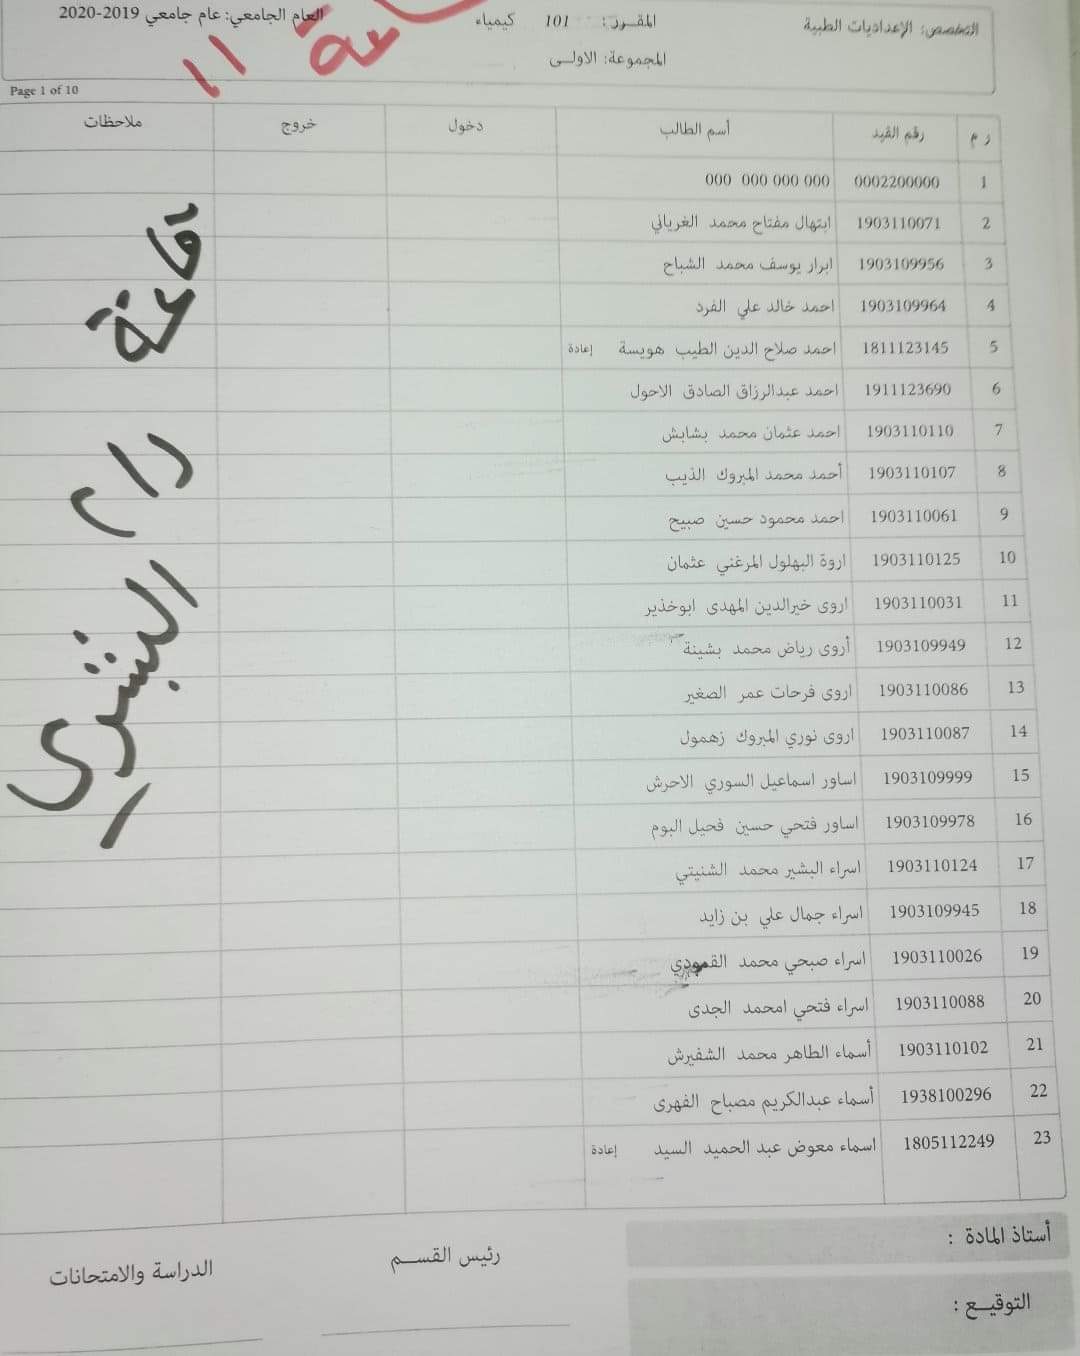 التخصص: الإعداديات الطبية المقرر: 101 كيمياء العام الجامعي: عام جامعي 2019-2020
المجموعة: الاولى
عة 11
Page 1 of 10
ر م رقم القيد أسم الطالب دخول خروج ملاحظات
1 0002200000 000 000 000 000
2 1903110071 ابتهال مفتاح محمد الغرياني
3 1903109956 ابرار يوسف محمد الشباح
4 1903109964 احمد خالد علي الفرد
5 1811123145 احمد صلاح الدين الطيب هويسة إعادة
6 1911123690 احمد عبدالرزاق الصادق الاحول
7 1903110110 احمد عثمان محمد بشابش
8 1903110107 أحمد محمد المبروك الذيب
9 1903110061 احمد محمود حسين صبيح
10 1903110125 اروة البهلول المرغني عثمان
11 1903110031 اروى خيرالدين المهدى ابوخذير
12 1903109949 أروى رياض محمد بشينة
13 1903110086 اروى فرحات عمر الصغير
14 1903110087 اروى نوري المبروك زهمول
15 1903109999 اساور اسماعيل السوري الاحرش
16 1903109978 اساور فتحي حسين فحيل البوم
17 1903110124 اسراء البشير محمد الشنيتي
18 1903109945 اسراء جمال علي بن زايد
19 1903110026 اسراء صبحي محمد القمودي
20 1903110088 اسراء فتحي امحمد الجدى
21 1903110102 أسماء الطاهر محمد الشفيرش
22 1938100296 أسماء عبدالكريم مصباح الفهرى
23 1805112249 اسماء معوض عبد الحميد السيد إعادة
قاعة
البشرى
أستاذ المادة :
رئيس القسم
الدراسة والامتحانات
التوقيع :